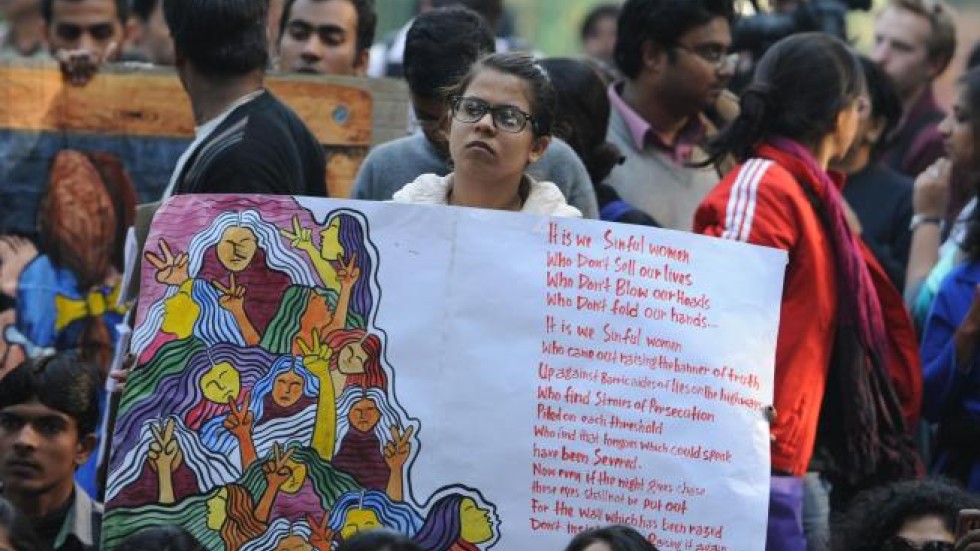 It is we Sinful women
Who Don't Sell our lives
Who Don't Blow our Heads
Who Don't fold our hands...
It is we Sinful women
Who came out raising the banner of truth
Up against Barricades of lies on the highways
Who find Stroies of Persecution
Piled on each threshold
Who find that tongues which could speak
have been Severed.
Now even if the night gives chase
these eyes shall not be put out
For the Wall which has been razed
Don't Insist Raising it again